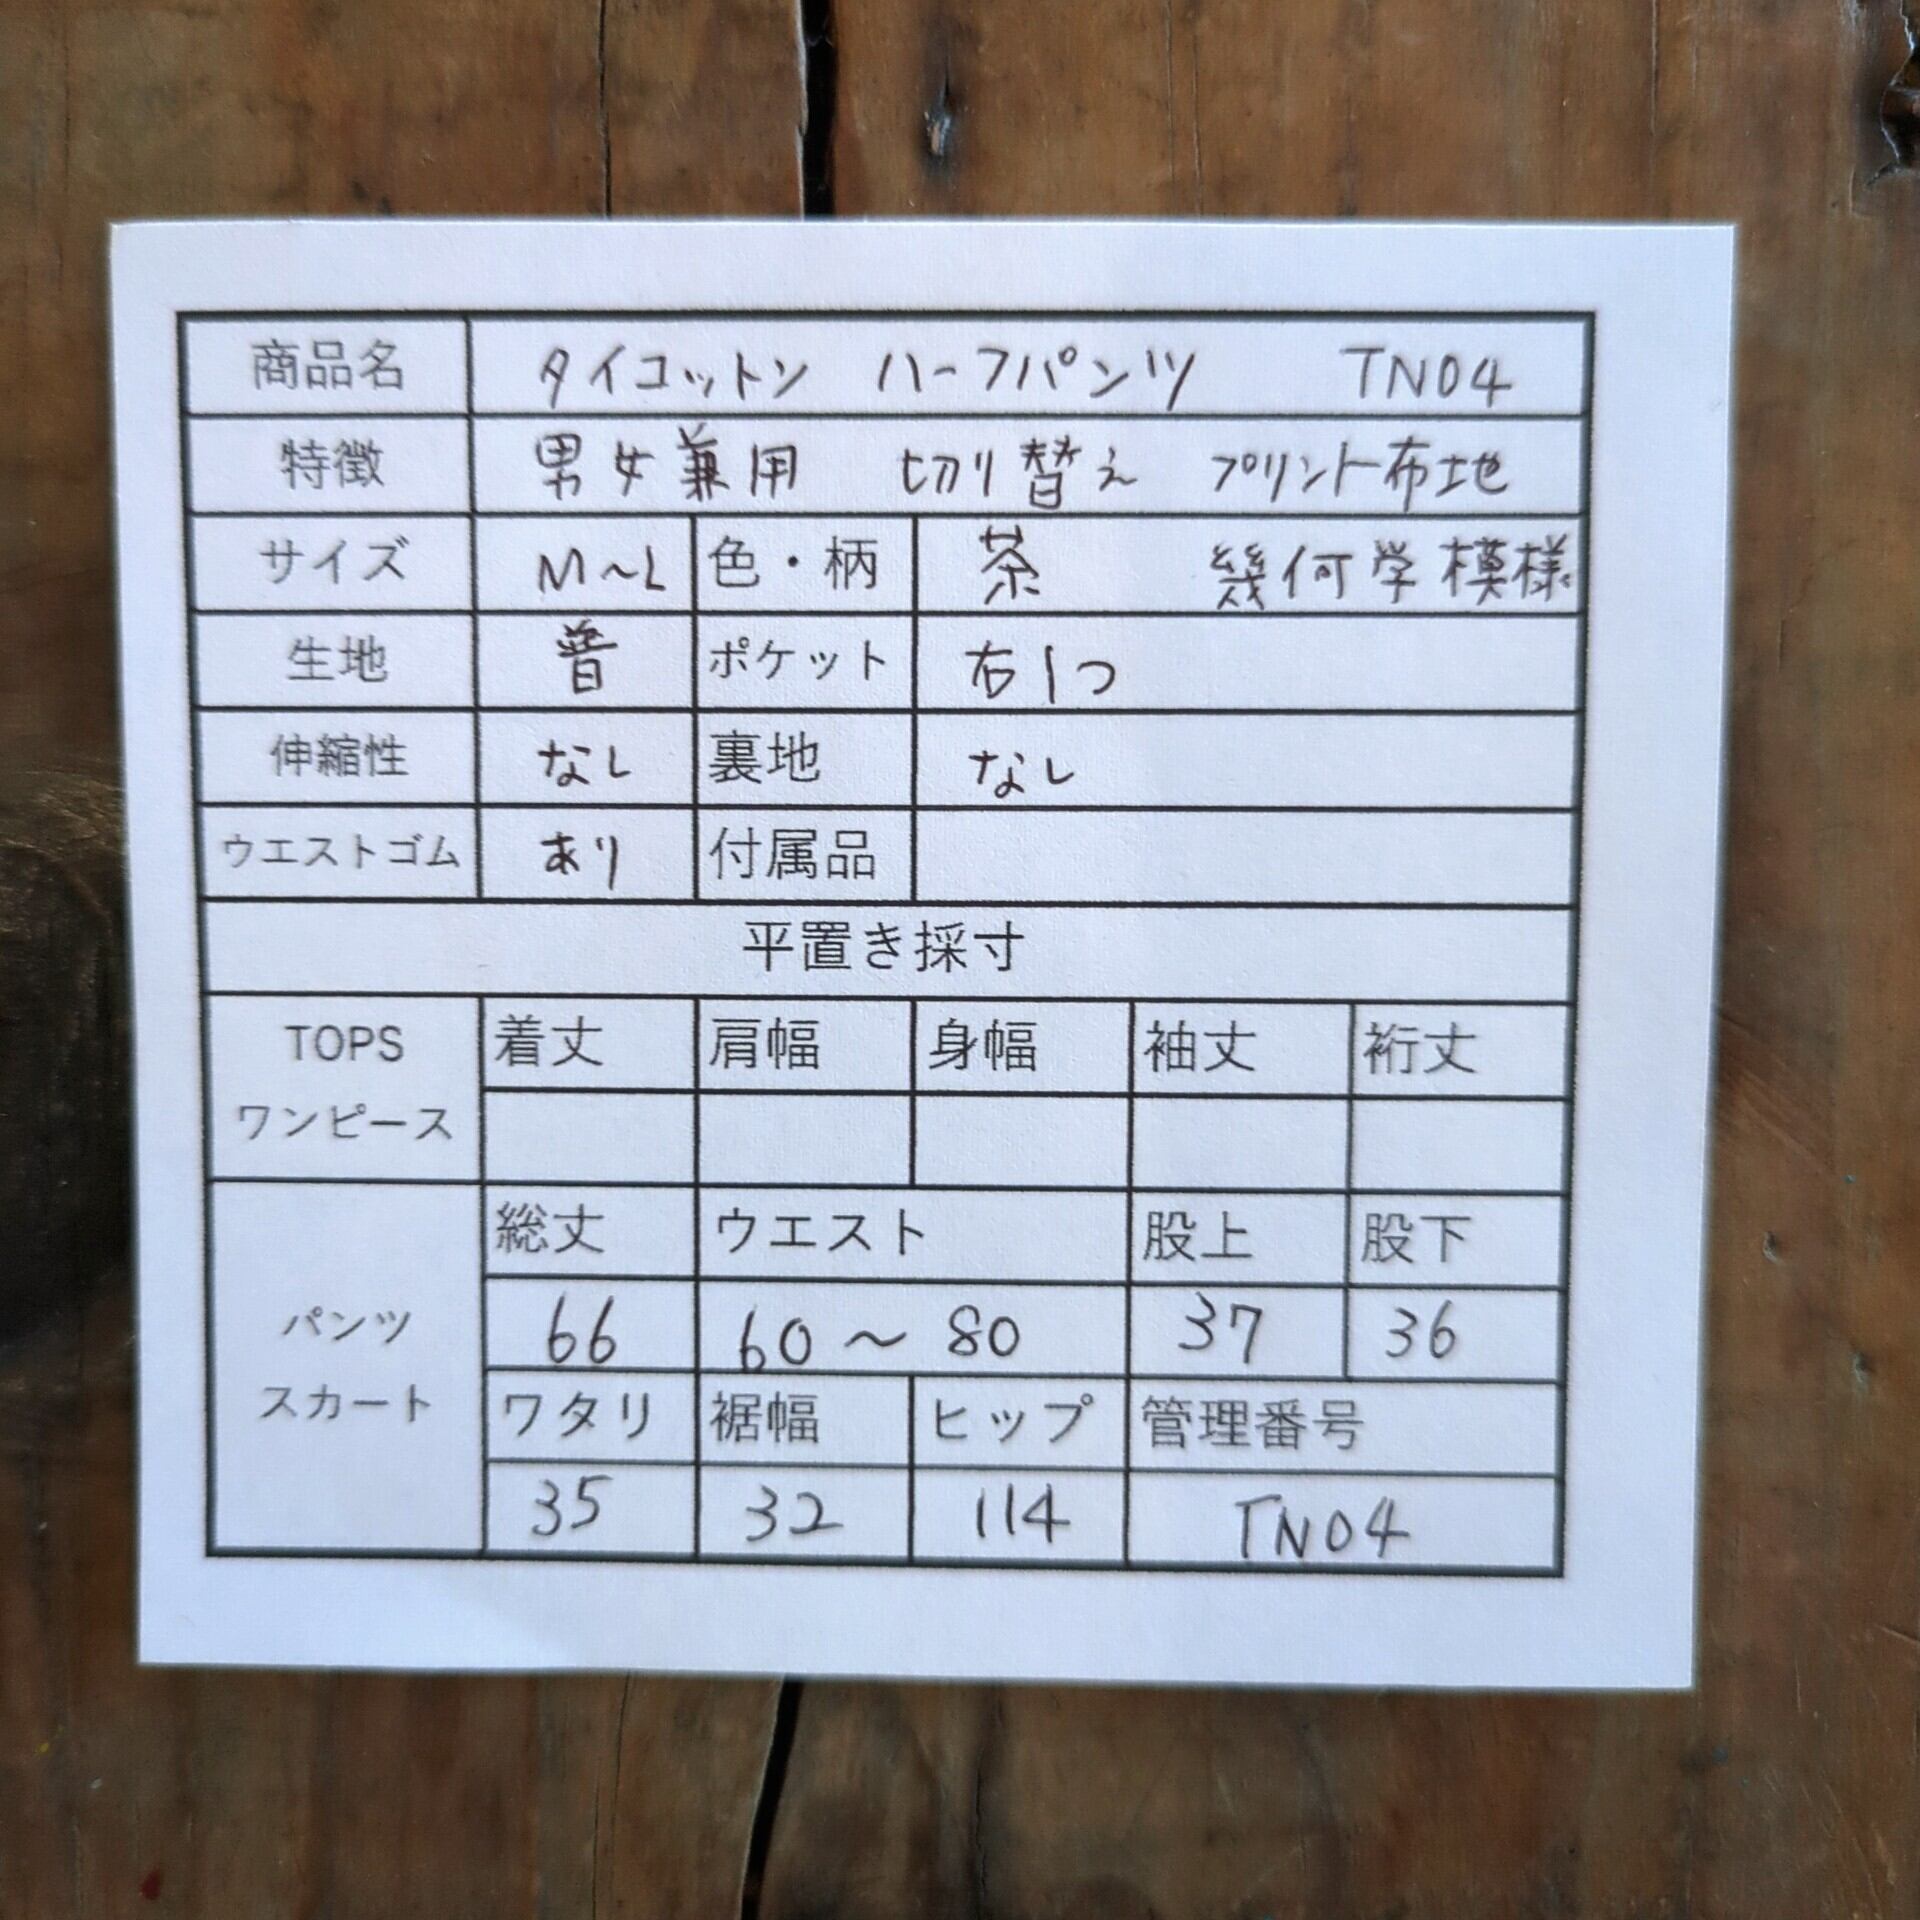 商品名 タイコットン ハーフパンツ TN04
特徴 男女兼用 切り替え プリント布地
サイズ M~L 色・柄 茶 幾何学模様
生地 普 ポケット 右1つ
伸縮性 なし 裏地 なし
ウエストゴム あり 付属品
平置き採寸
TOPS 着丈 肩幅 身幅 袖丈 裄丈
ワンピース
総丈 ウエスト 股上 股下
パンツ 66 60~80 37 36
スカート ワタリ 裾幅 ヒップ 管理番号
35 32 114 TN04